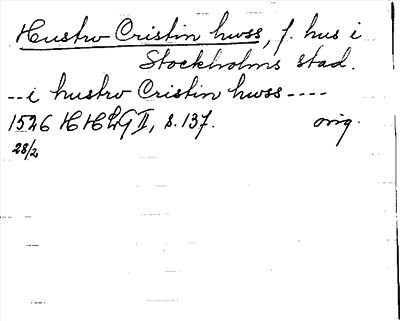 Hustrv Cristin hwss, f. hus i
Stockholms stad.
-- i hustrv Cristin hwss ----
1526 HHLG II, s. 137. orig.
28/2